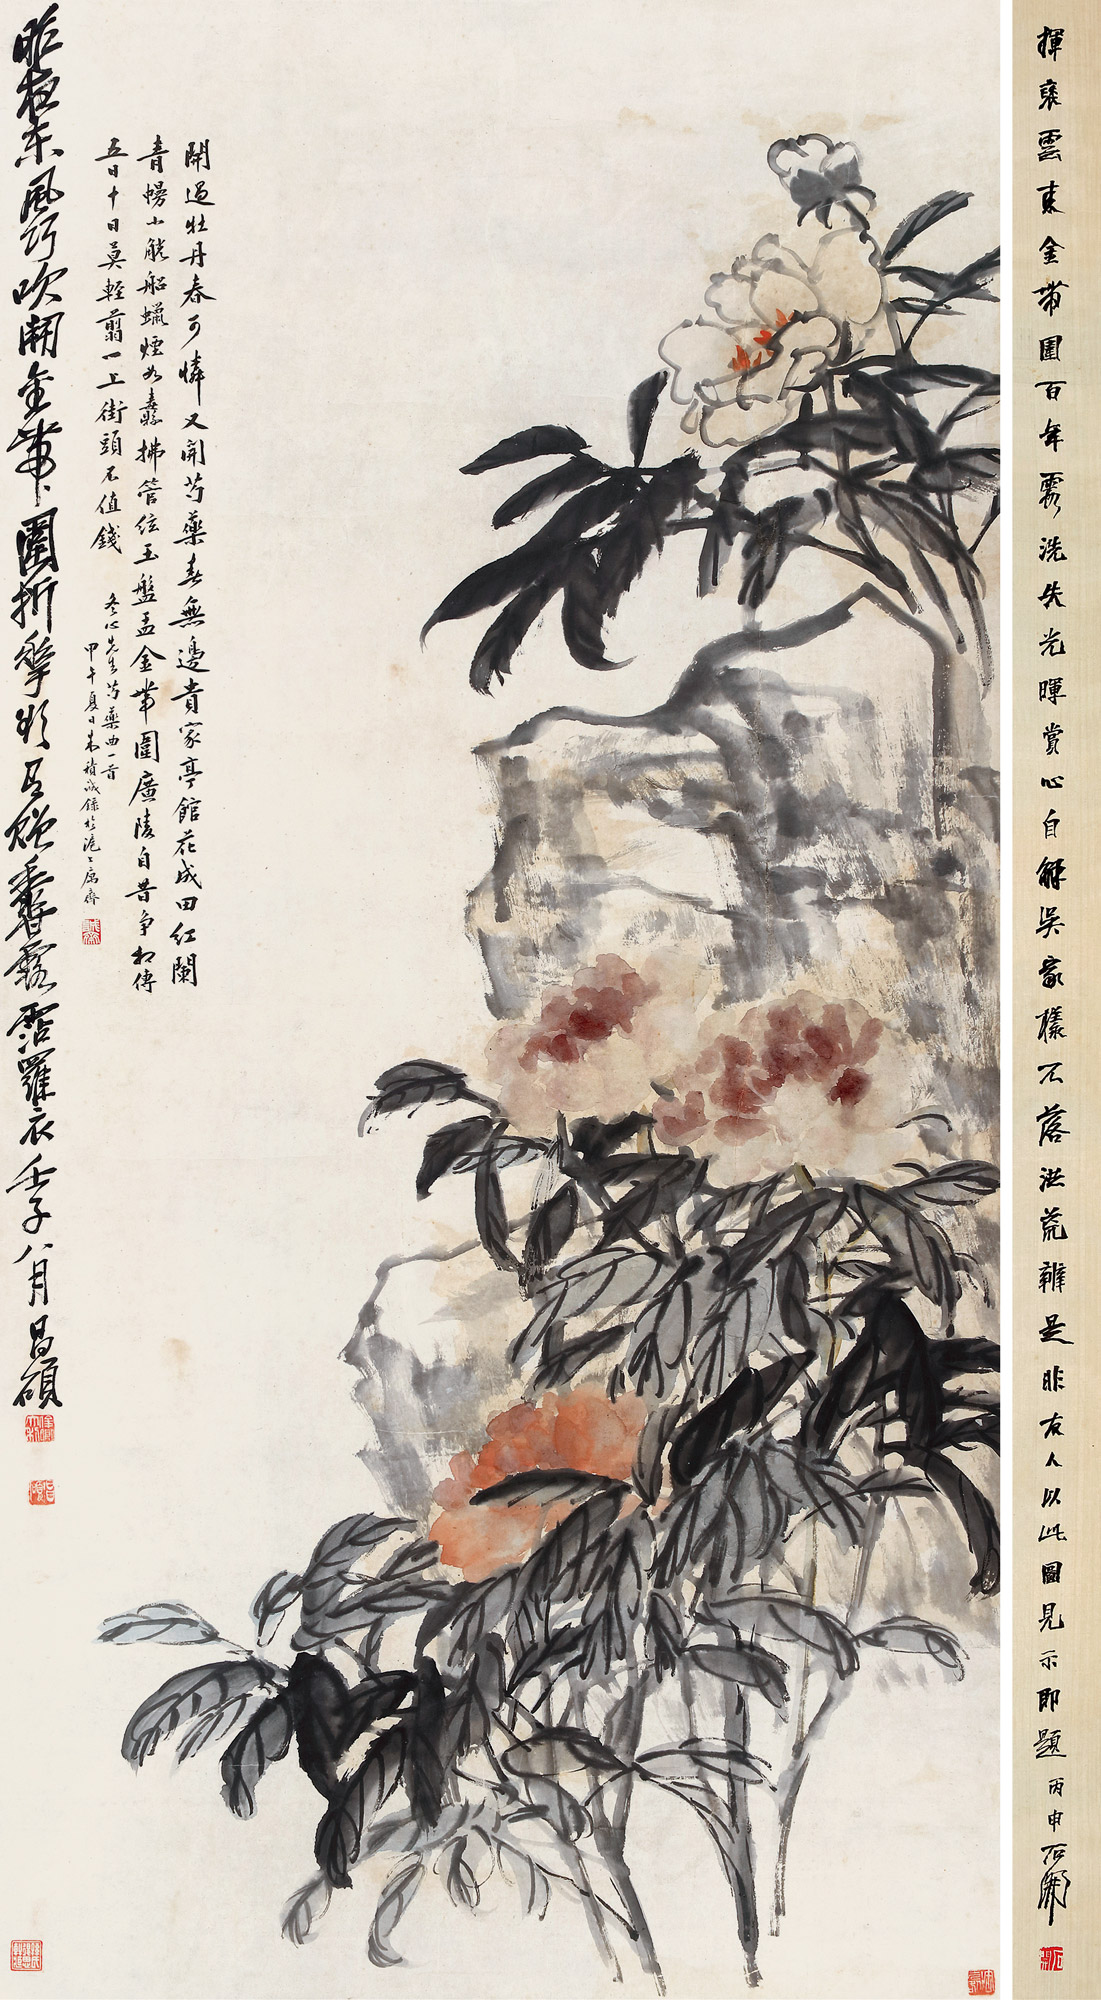 揮雲東金帶圍百年洗失光暉賞心自解吳家樣不落洪荒辨是非友人以此圖見示即題 丙申石開
開過牡丹春可憐又開芍藥春無邊貴家亭館花成田紅闌
青幔小船蠟煙如纛拂管絃玉盤盂金帶圍廣陵自昔爭相傳
五日十日莫輕翦一上街頭不值錢
冬心先生芍藥曲一首
甲午夏日朱積誠錄於滬上寓齋
昨夜東風巧吹開金帶圍折欲有贈香露霑羅衣壬子八月昌碩